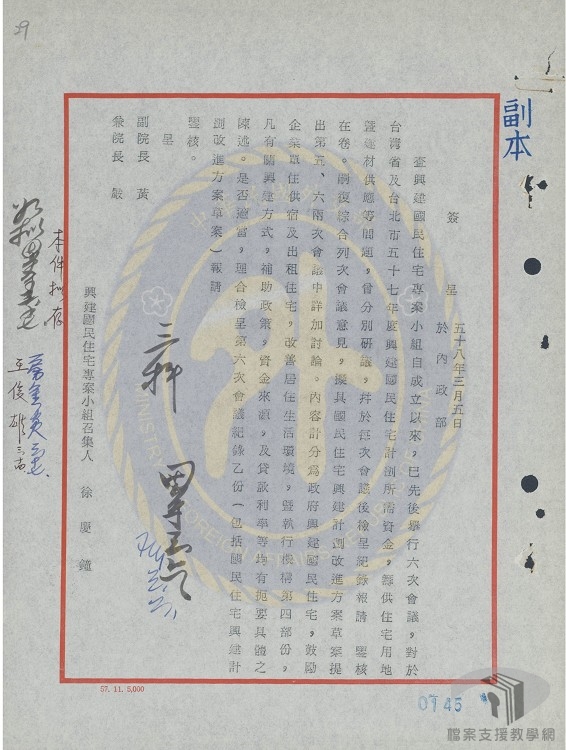 29
副本
簽 呈 五十八年三月五日
於內政部
查興建國民住宅專案小組自成立以來，已先後舉行六次會議，對於
台灣省及台北市五十七年度興建國民住宅計劃所需資金，籌供住宅用地
暨建材供應等問題，曾分別研議，幷於每次會議後檢呈紀錄報請 鑒核
在卷。嗣復綜合列次會議意見，擬具國民住宅興建計劃改進方案草案提
出第五、六兩次會議中詳加討論。內容計分爲政府興建國民住宅，鼓勵
企業單位供宿及出租住宅，改善居住生活環境，暨執行機構第四部份，
凡有關興建方式，補助政策，資金來源，及貸款利率等均有扼要具體之
陳述。是否適當，理合檢呈第六次會議紀錄乙份（包括國民住宅興建計
劃改進方案草案）報請
鑒核。
呈
副院長 黃
兼院長 嚴
興建國民住宅專案小組召集人 徐慶鐘
三科
本件擬存
王俊雄
57. 11. 5,000
0745
檔案支援教學網